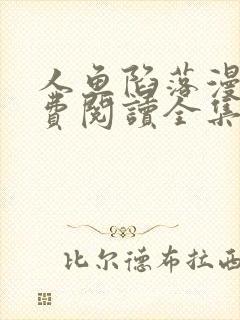 人鱼陷落漫
費閱讀全集
比尔德布拉西